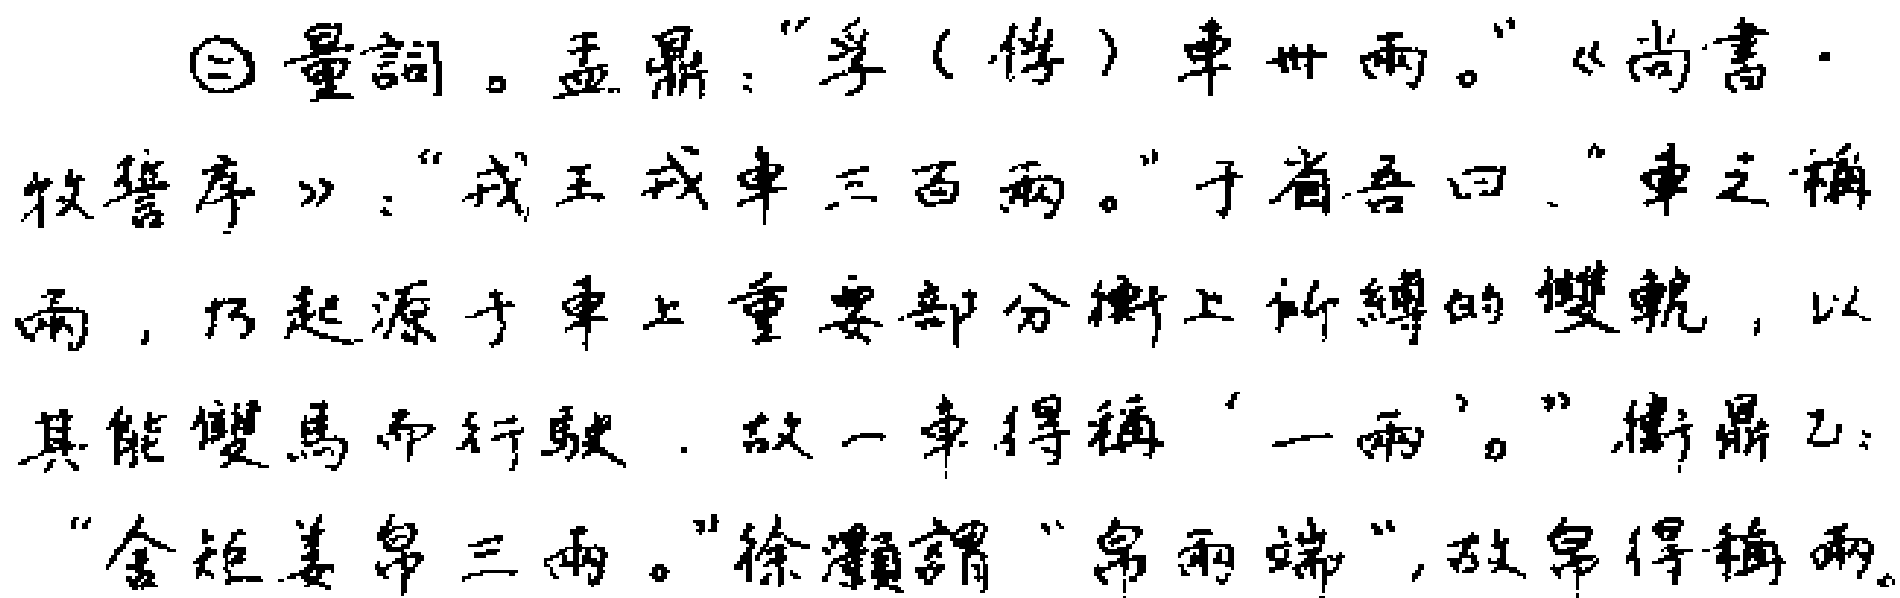 ㊁量詞。盂鼎:“孚(俘)車卅兩。”《尚書·
牧誓序》:“戎王戎車三百兩。”于省吾曰:“車之稱
兩,乃起源于車上重要部分衡上所縛的雙軛,以
其能雙馬而行駛.故一車得稱‘一兩’。”衛鼎乙:
“舍矩姜帛三兩。”徐灝謂“帛兩端”,故帛得稱兩。